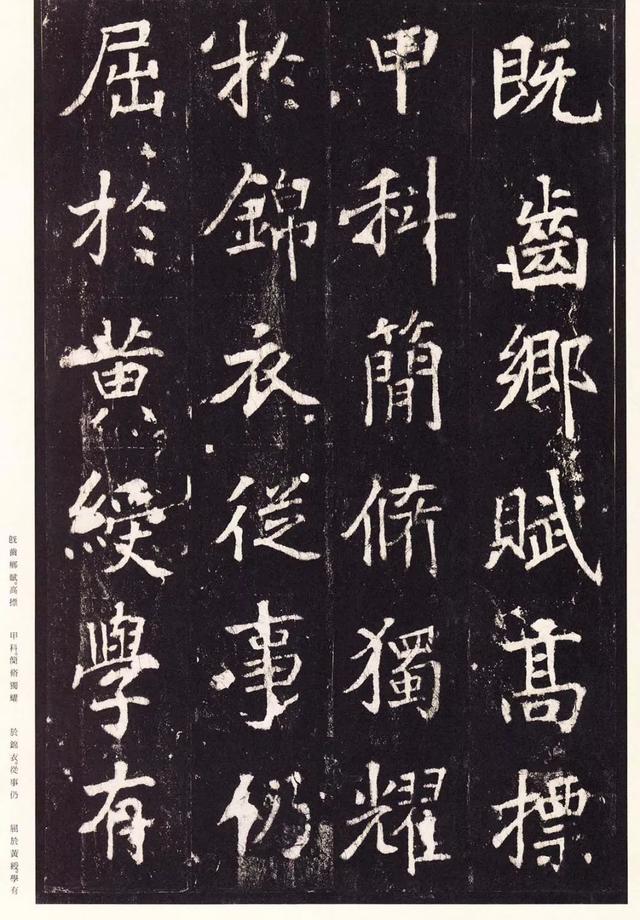 既齒鄉賦高標
甲科簡脩獨耀
於錦衣從事仍
屈於黄綬學有
既齒鄉賦。高標 甲科。簡脩獨耀 於錦衣。從事仍 屈於黄綬。學有